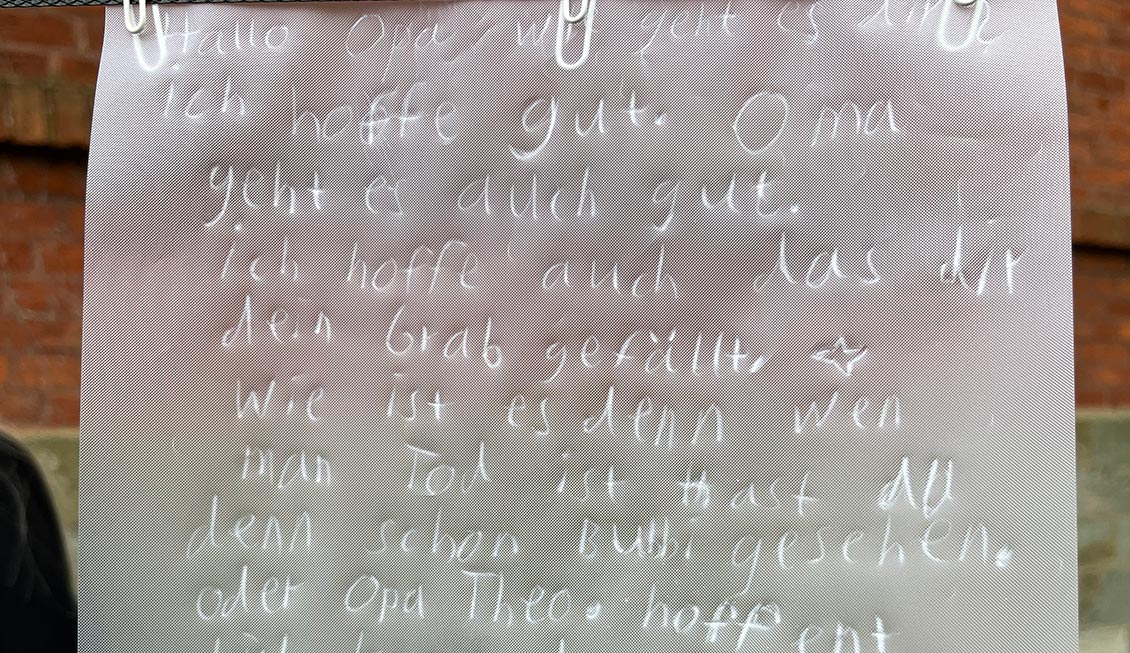 Hallo Opa, wie geht es dir
ich hoffe gut. Oma
geht es auch gut.
ich hoffe auch das dir
dein Grab gefällt.
Wie ist es denn wen
man Tod ist hast du
denn schon gesehen.
oder Opa Theo. hoffent